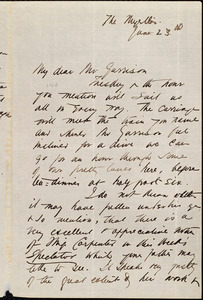 The Myrtles.
June 23rd
My dear Mr Garrison
Tuesday & the hour
you mention will suit us
all in every way. The carriage
will meet the train you name
and should Mr Garrison feel
inclined for a drive we can
go for an hour through some
of our pretty lanes here, before
tea-dinner at half past six.
I do not
it may have
to mention, that there is a
very excellent & appreciative notice
of Miss Carpenter in this week's
Spectator which your father may
like to see. It speaks very justly
of the great extent of his work &